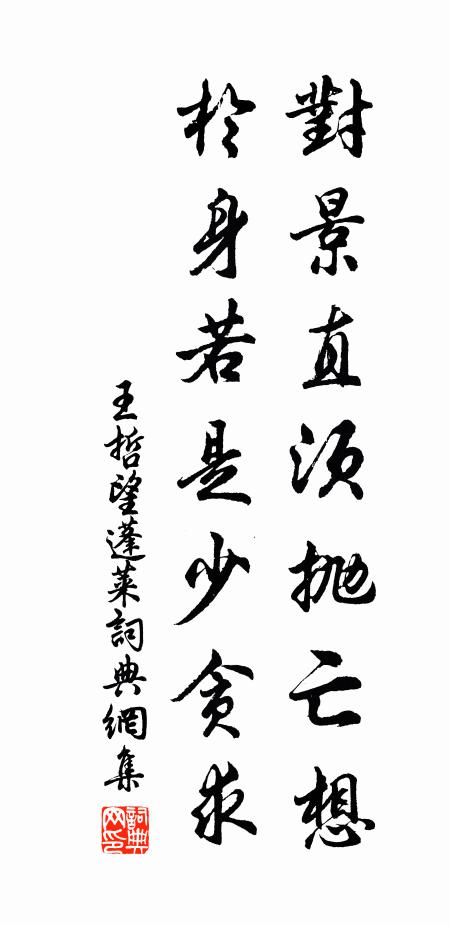 對景直須拋亡想
於身若是少貪求
王哲望蓬萊詞典網集
詞典网印